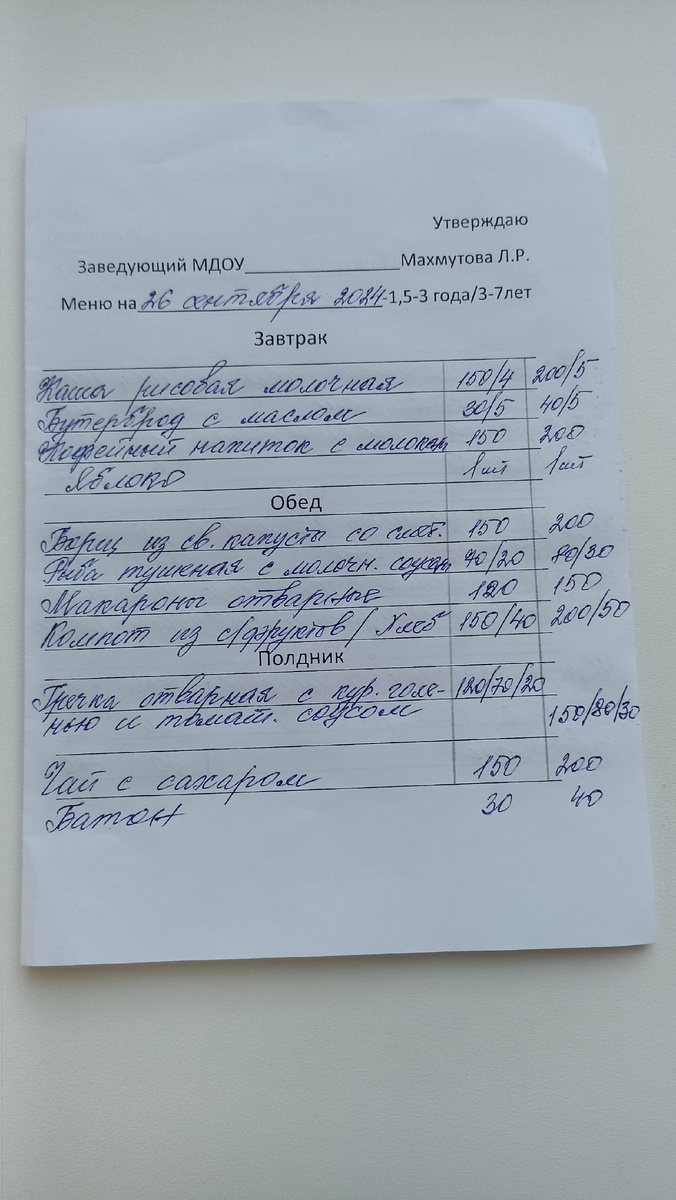 Утверждаю
Заведующий МДОУ________________Махмутова Л.Р.
Меню на 26 сентября 2024-1,5-3 года/3-7лет
Завтрак
Каша рисовая молочная 150/4 200/5
Бутерброд с маслом 30/5 40/5
Кофейный напиток с молоком 150 200
Яблоко 1шт 1шт
Обед
Борщ из св. капусты со смет. 150 200
Рыба тушеная с молочн. соусом 70/20 80/30
Макароны отварные 120 150
Компот из с/фруктов/ Хлеб 150/40 200/50
Полдник
Гречка отварная с кур. голе- 120/70/20
нью и томат. соусом 150/80/30
Чай с сахаром 150 200
Батон 30 40